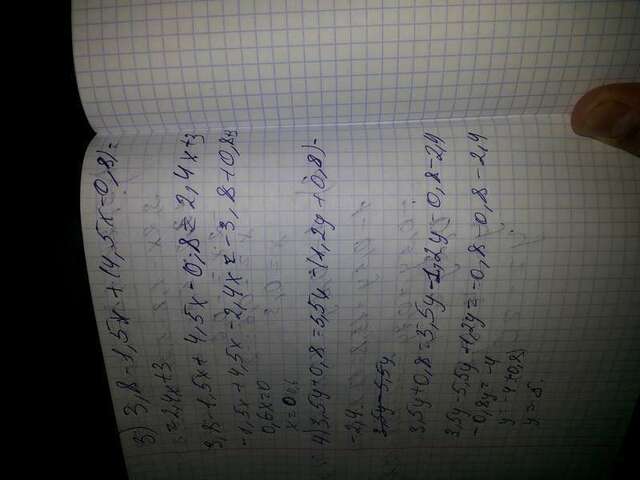 3) 3,8-1,5x+(4,5x-0,8)=
=2,4x+3
3,8-1,5x+4,5x-0,8=2,4x+3
-1,5x+4,5x-2,4x=-3,8+0,8+3
0,6x=0
x=0
4) 3,5y+0,8=5,5y-(1,2y+0,8)-
-2,4
3,5y-5,5y
3,5y+0,8=5,5y-1,2y-0,8-2,4
3,5y-5,5y+1,2y=-0,8-0,8-2,4
-0,8y=-4
y=-4:(-0,8)
y=5.